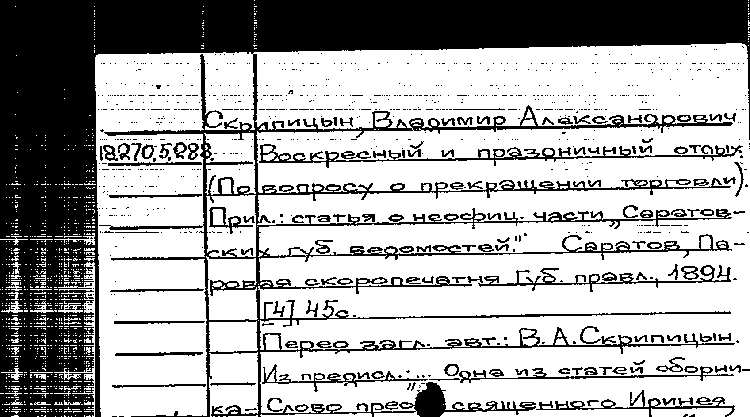 Скрипицын, Владимир Александрович
18.270.5.288. Воскресный и праздничный отдых
(По вопросу о прекращении торговли).
Прил.: статья о неофиц. части „Саратов-
ских губ. ведомостей." Саратов, Па-
ровая скоропечатня Губ. правл., 1894.
[4], 45с.
Перед загл. авт.: В.А.Скрипицын.
Из предисл.: ... Одна из статей сборни-
ка- Слово прео священного Иринея,